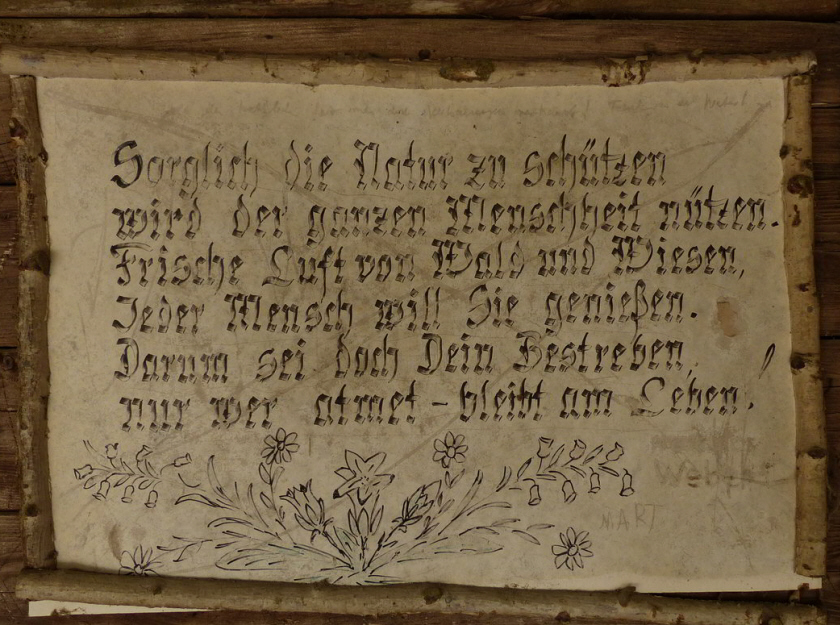 Sorglich die Natur zu schützen
wird der ganzen Menschheit nützen.
Frische Luft von Wald und Wiesen,
Jeder Mensch will Sie genießen.
Darum sei doch Dein Bestreben,
nur wer atmet - bleibt am Leben!